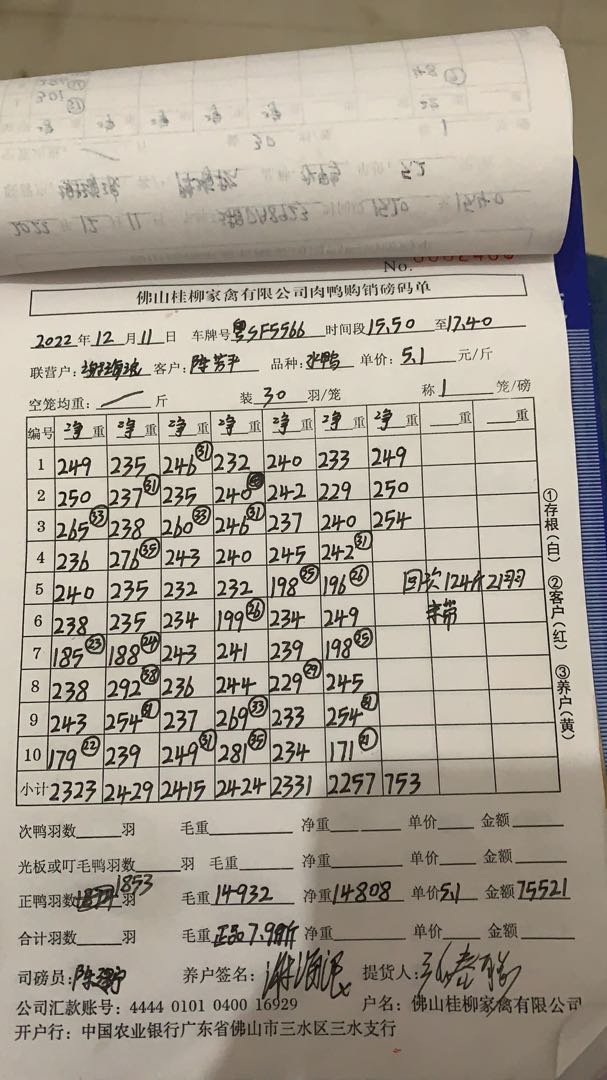 No.
佛山桂柳家禽有限公司肉鸭购销磅码单
2022年12月11日 车牌号粤SF5566 时间段15.50至17.40
联营户: 客户:陈芳平 品种:水鸭 单价:5.1元/斤
空笼均重:一斤 装30羽/笼 称1笼/磅
编号 净重 净重 净重 净重 净重 净重 净重 重 重
1 249 235 246㉛ 232 240 233 249
2 250 237㉛ 235 240 242 229 250
3 265㉝ 238 260㉝ 246㉛ 237 240 254
4 236 276㉟ 243 240 245 242㉛
5 240 235 232 232 198㉕ 196㉖ 回 124斤21羽
6 238 235 234 199㉖ 234 249
7 185㉓ 188㉔ 243 241 239 198㉕
8 238 292㊳ 236 244 229㉙ 245
9 243 254㉛ 237 269㉝ 233 254㉛
10 179㉒ 239 249㉛ 281㉟ 234 171㉑
小计 2323 2429 2415 2424 2331 2257 753
①存根(白) ②客户(红) ③养户(黄)
次鸭羽数 羽 毛重 净重 单价 金额
光板或叮毛鸭羽数 羽 毛重 净重 单价 金额
正鸭羽数 1853 羽 毛重14932 净重14808 单价5.1 金额75521
合计羽数 羽 毛重 正品7.99斤 净重 单价 金额
司磅员: 养户签名: 提货人:
公司汇款账号: 4444 0101 0400 16929 户名: 佛山桂柳家禽有限公司
开户行: 中国农业银行广东省佛山市三水区三水支行